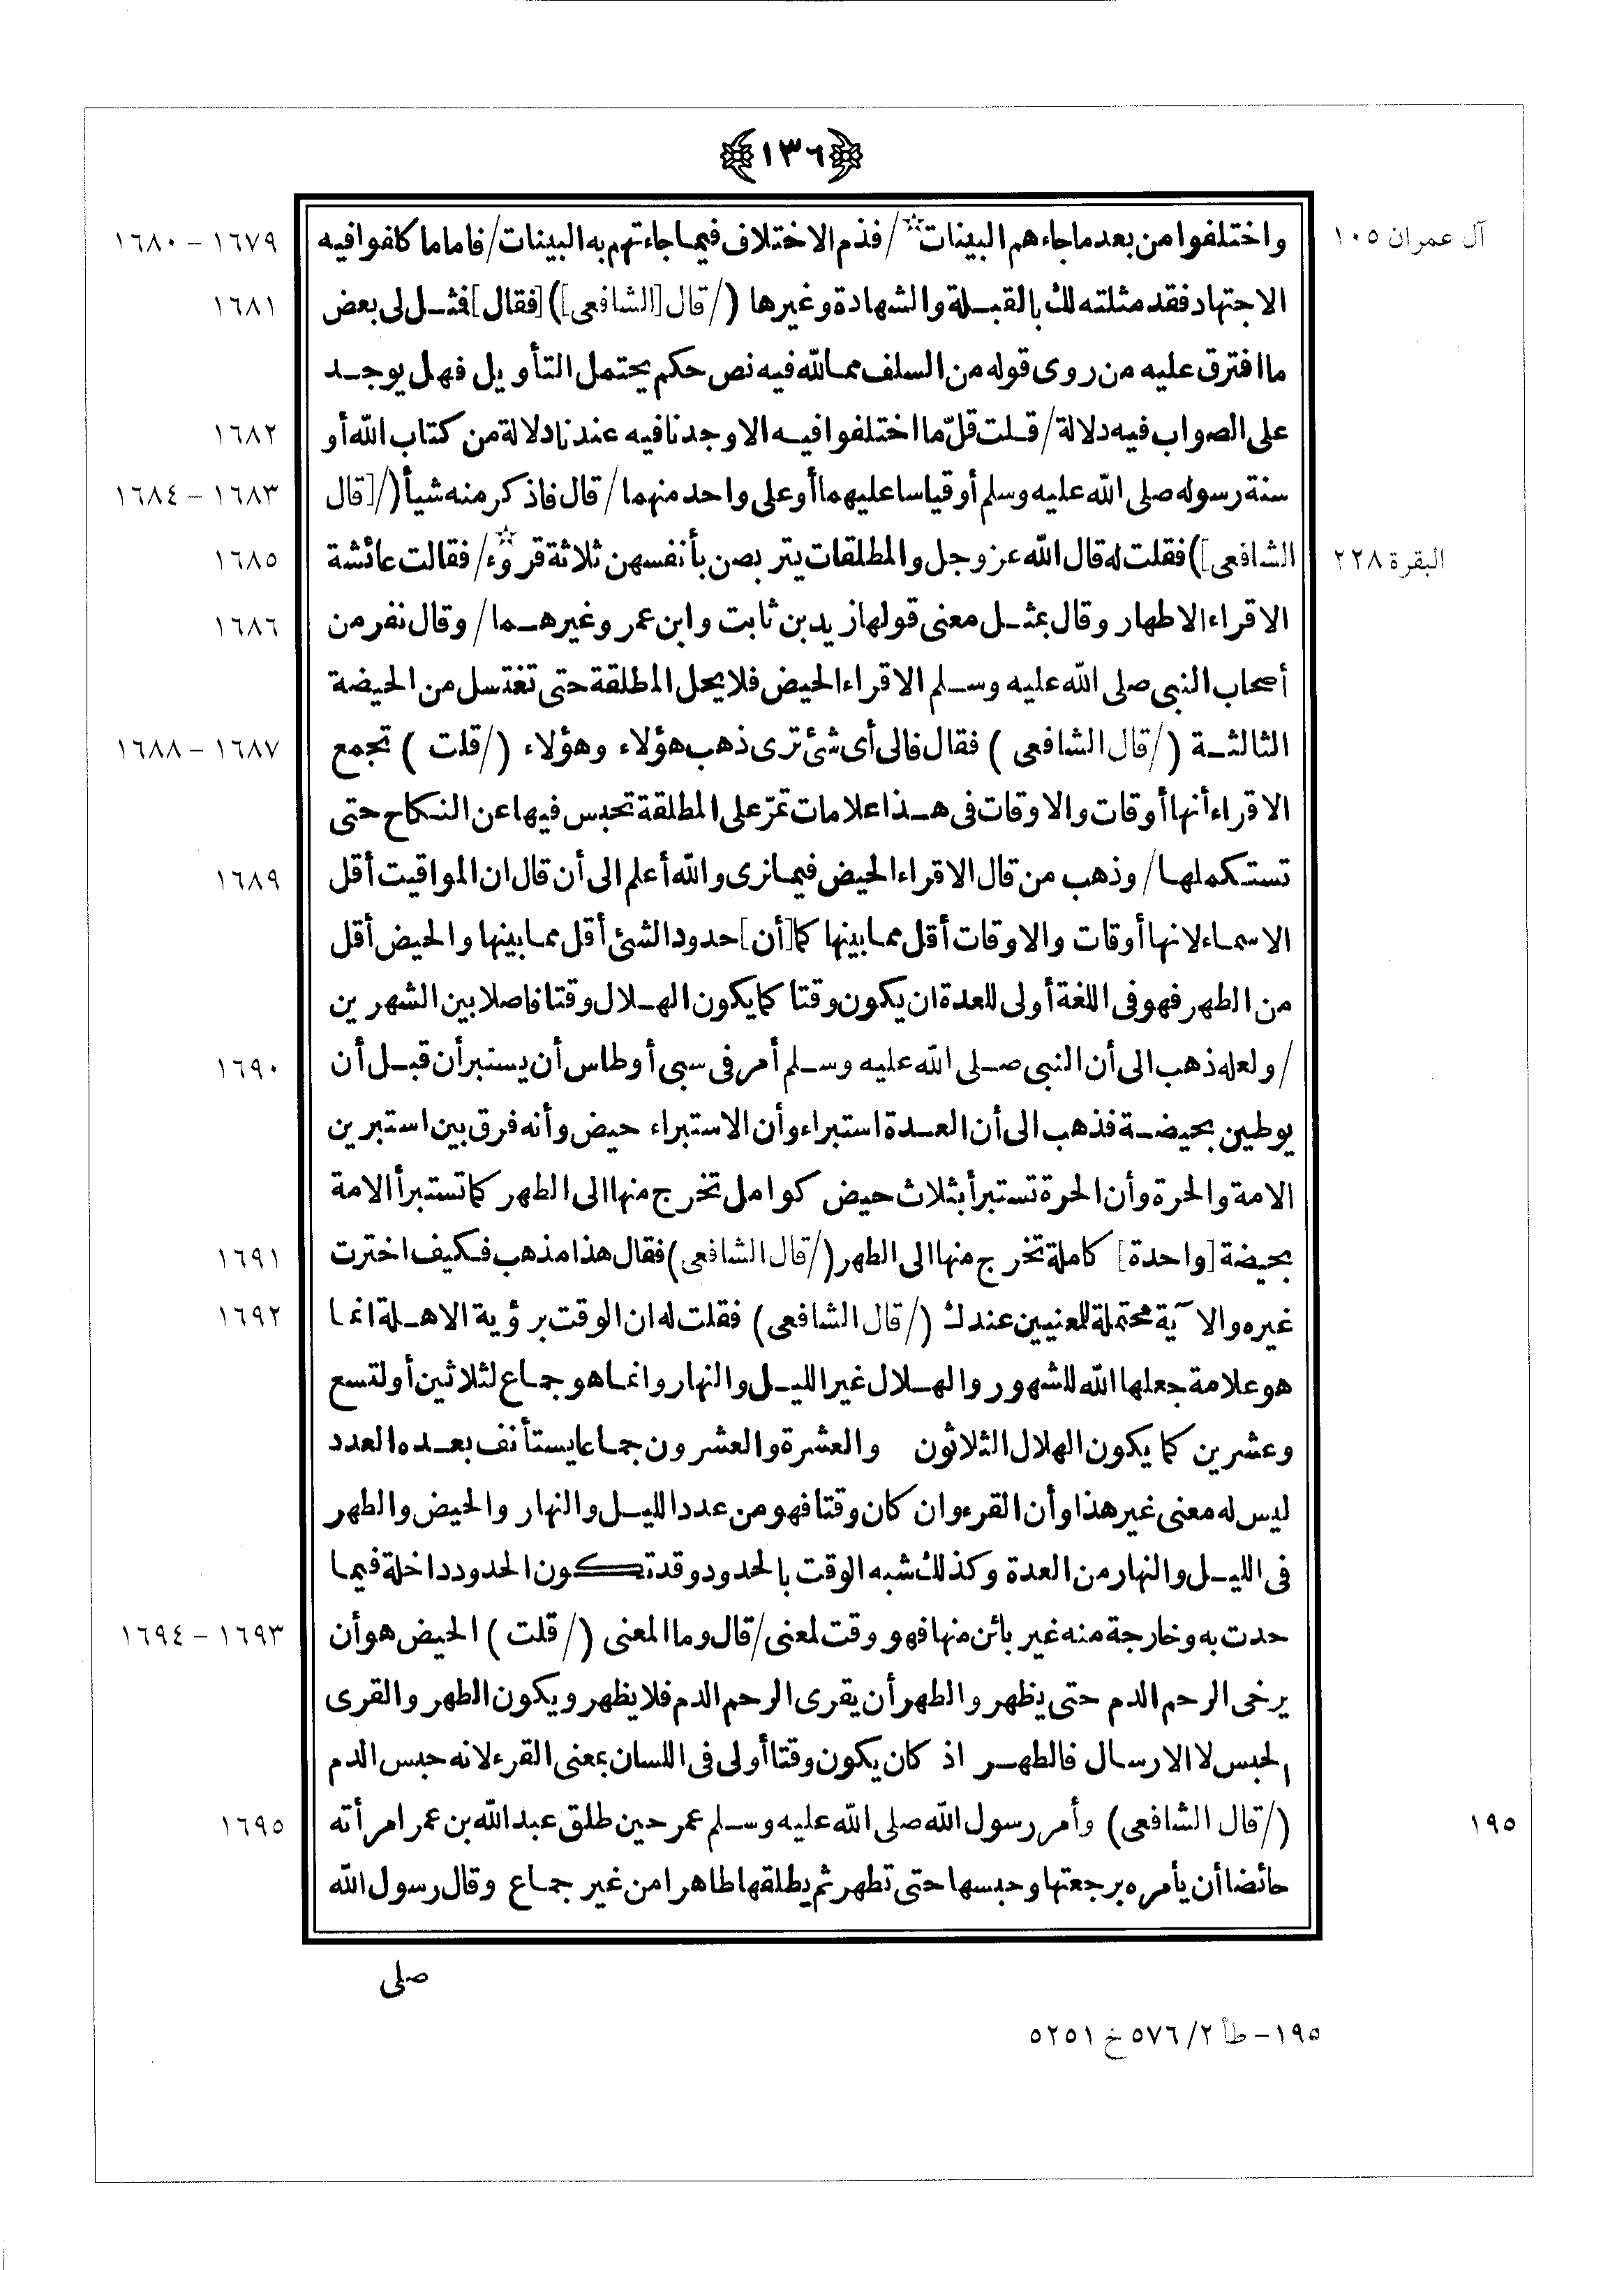 ١٣٦
آل عمران ١٠٥ واختلفوا من بعد ما جاءهم البينات☆/فذم الاختلاف فيما جاءتهم به البينات/فاما ما كلفوا فيه ١٦٧٩ – ١٦٨٠
الاجتهاد فقد مثلته لك بالقبلة والشهادة وغيرها (/قال [الشافعى]) [فقال] فثل لى بعض ١٦٨١
ما افترق عليه من روى قوله من السلف مما لله فيه نص حكم يحتمل التأويل فهل يوجد
على الصواب فيه دلالة/قلت قلّ ما اختلفوا فيه الا وجدنا فيه عندنا دلالة من كتاب الله أو ١٦٨٢
سنة رسوله صلى الله عليه وسلم أو قياسا عليهما أو على واحد منهما/قال فاذكر منه شيأ (/[قال ١٦٨٣ – ١٦٨٤
البقرة ٢٢٨ الشافعى]) فقلت له قال الله عز وجل والمطلقات يتربصن بأنفسهن ثلاثة قروء☆/فقالت عائشة ١٦٨٥
الاقراء الاطهار وقال بمثل معنى قولها زيد بن ثابت وابن عمر وغيرهما/وقال نفر من ١٦٨٦
أصحاب النبى صلى الله عليه وسلم الاقراء الحيض فلا يحل المطلقة حتى تغتسل من الحيضة
الثالثة (/قال الشافعى) فقال فالى أى شئ ترى ذهب هؤلاء وهؤلاء (/قلت) تجمع ١٦٨٧ – ١٦٨٨
الاقراء أنها أوقات والاوقات فى هذا علامات تمرّ على المطلقة تحبس فيها عن النكاح حتى
تستكملها/وذهب من قال الاقراء الحيض فيما نرى والله أعلم الى أن قال ان المواقيت أقل ١٦٨٩
الاسماء لانها أوقات والاوقات أقل مما بينها كما [أن] حدود الشئ أقل مما بينها والحيض أقل
من الطهر فهو فى اللغة أولى للعدة ان يكون وقتا كما يكون الهلال وقتا فاصلا بين الشهرين
/ولعله ذهب الى أن النبى صلى الله عليه وسلم أمر فى سبى أوطاس أن يستبرأن قبل أن ١٦٩٠
يوطين بحيضة فذهب الى أن العدة استبراء وأن الاستبراء حيض وأنه فرق بين استبرين
الامة والحرة وأن الحرة تستبرأ بثلاث حيض كوامل تخرج منها الى الطهر كما تستبرأ الامة
بحيضة [واحدة] كاملة تخرج منها الى الطهر (/قال الشافعى) فقال هذا مذهب فكيف اخترت ١٦٩١
غيره والآية محتملة للمعنيين عندك (/قال الشافعى) فقلت له ان الوقت برؤية الاهلة انما ١٦٩٢
هو علامة جعلها الله للشهور والهلال غير الليل والنهار وانما هو جماع لثلاثين أو لتسع
وعشرين كما يكون الهلال الثلاثون والعشرة والعشرون جماعا يستأنف بعده العدد
ليس له معنى غير هذا وأن القرء وان كان وقتا فهو من عدد الليل والنهار والحيض والطهر
فى الليل والنهار من العدة وكذلك شبه الوقت بالحدود وقد تكون الحدود داخلة فيما
حدت به وخارجة منه غير بائن منها فهو وقت لمعنى/قال وما المعنى (/قلت) الحيض هو أن ١٦٩٣ – ١٦٩٤
يرخى الرحم الدم حتى يظهر والطهر أن يقرى الرحم الدم فلا يظهر ويكون الطهر والقرى
الحبس لا الارسال فالطهر اذ كان يكون وقتا أولى فى اللسان بمعنى القرء لانه حبس الدم
١٩٥ (/قال الشافعى) وأمر رسول الله صلى الله عليه وسلم عمر حين طلق عبد الله بن عمر امرأته ١٦٩٥
حائضا أن يأمره برجعتها وحبسها حتى تطهر ثم يطلقها طاهرا من غير جماع وقال رسول الله
صلى
١٩٥ – طأ ٢/٥٧٦ خ ٥٢٥١